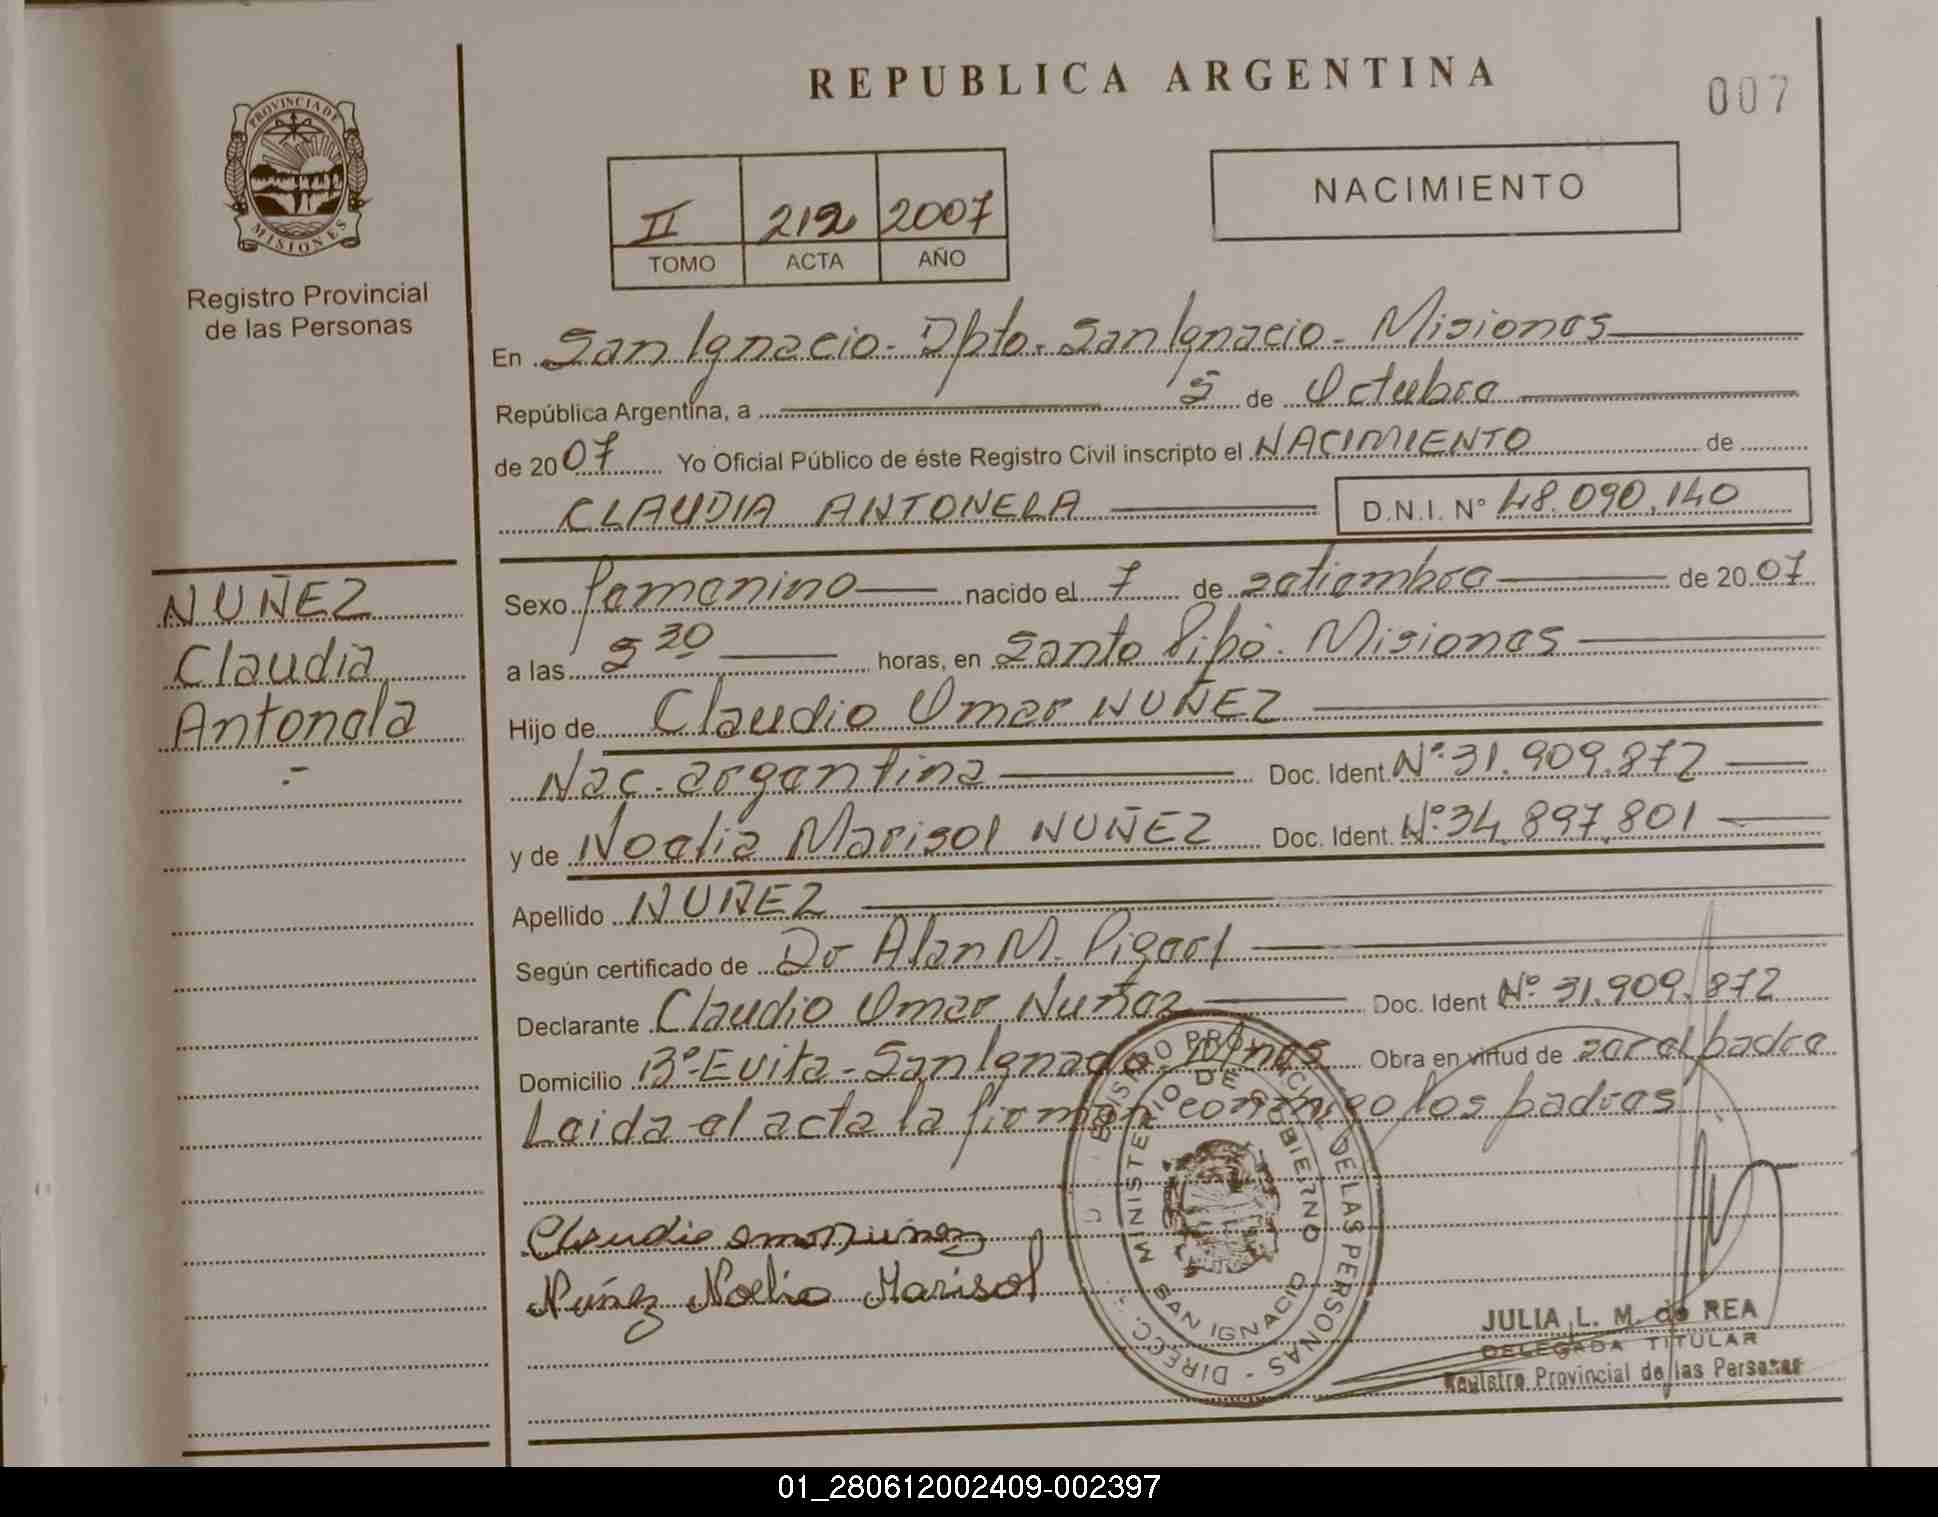 REPUBLICA ARGENTINA
007
PROVINCIA DE
MISIONES
Registro Provincial
de las Personas
II 212 2007
TOMO ACTA AÑO
NACIMIENTO
En San Ignacio - Dpto. San Ignacio - Misiones
República Argentina, a 5 de Octubre
de 2007 Yo Oficial Público de éste Registro Civil inscripto el NACIMIENTO de
CLAUDIA ANTONELA D.N.I. Nº 48.090.140
NUÑEZ
Claudia
Antonela
Sexo femenino nacido el 7 de setiembre de 2007
a las 5 30 horas, en Santo Pipó. Misiones
Hijo de Claudio Omar NUÑEZ
Nac. argentina Doc. Ident. Nº 31.909.872
y de Noelia Marisol NUÑEZ Doc. Ident. Nº 34.897.801
Apellido NUÑEZ
Según certificado de Dr Alan M.
Declarante Claudio Omar Nuñez Doc. Ident Nº 31.909.872
Domicilio Bº Evita - San Ignacio. Mnes Obra en virtud de ser el padre
Leida el acta la firman conmigo los padres
Claudio omar nuñez
Núñez Noelia Marisol
PROVINCIAL DE LAS PERSONAS - DIRECC.
MINISTERIO DE GOBIERNO
SAN IGNACIO
JULIA L. M. de REA
DELEGADA TITULAR
Registro Provincial de las Personas
01_280612002409-002397